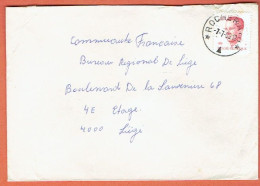 Communauté Française
Bureau Regional De Liège
Boulevard De la Sauvenière 68
4E Etage
4000
Liège